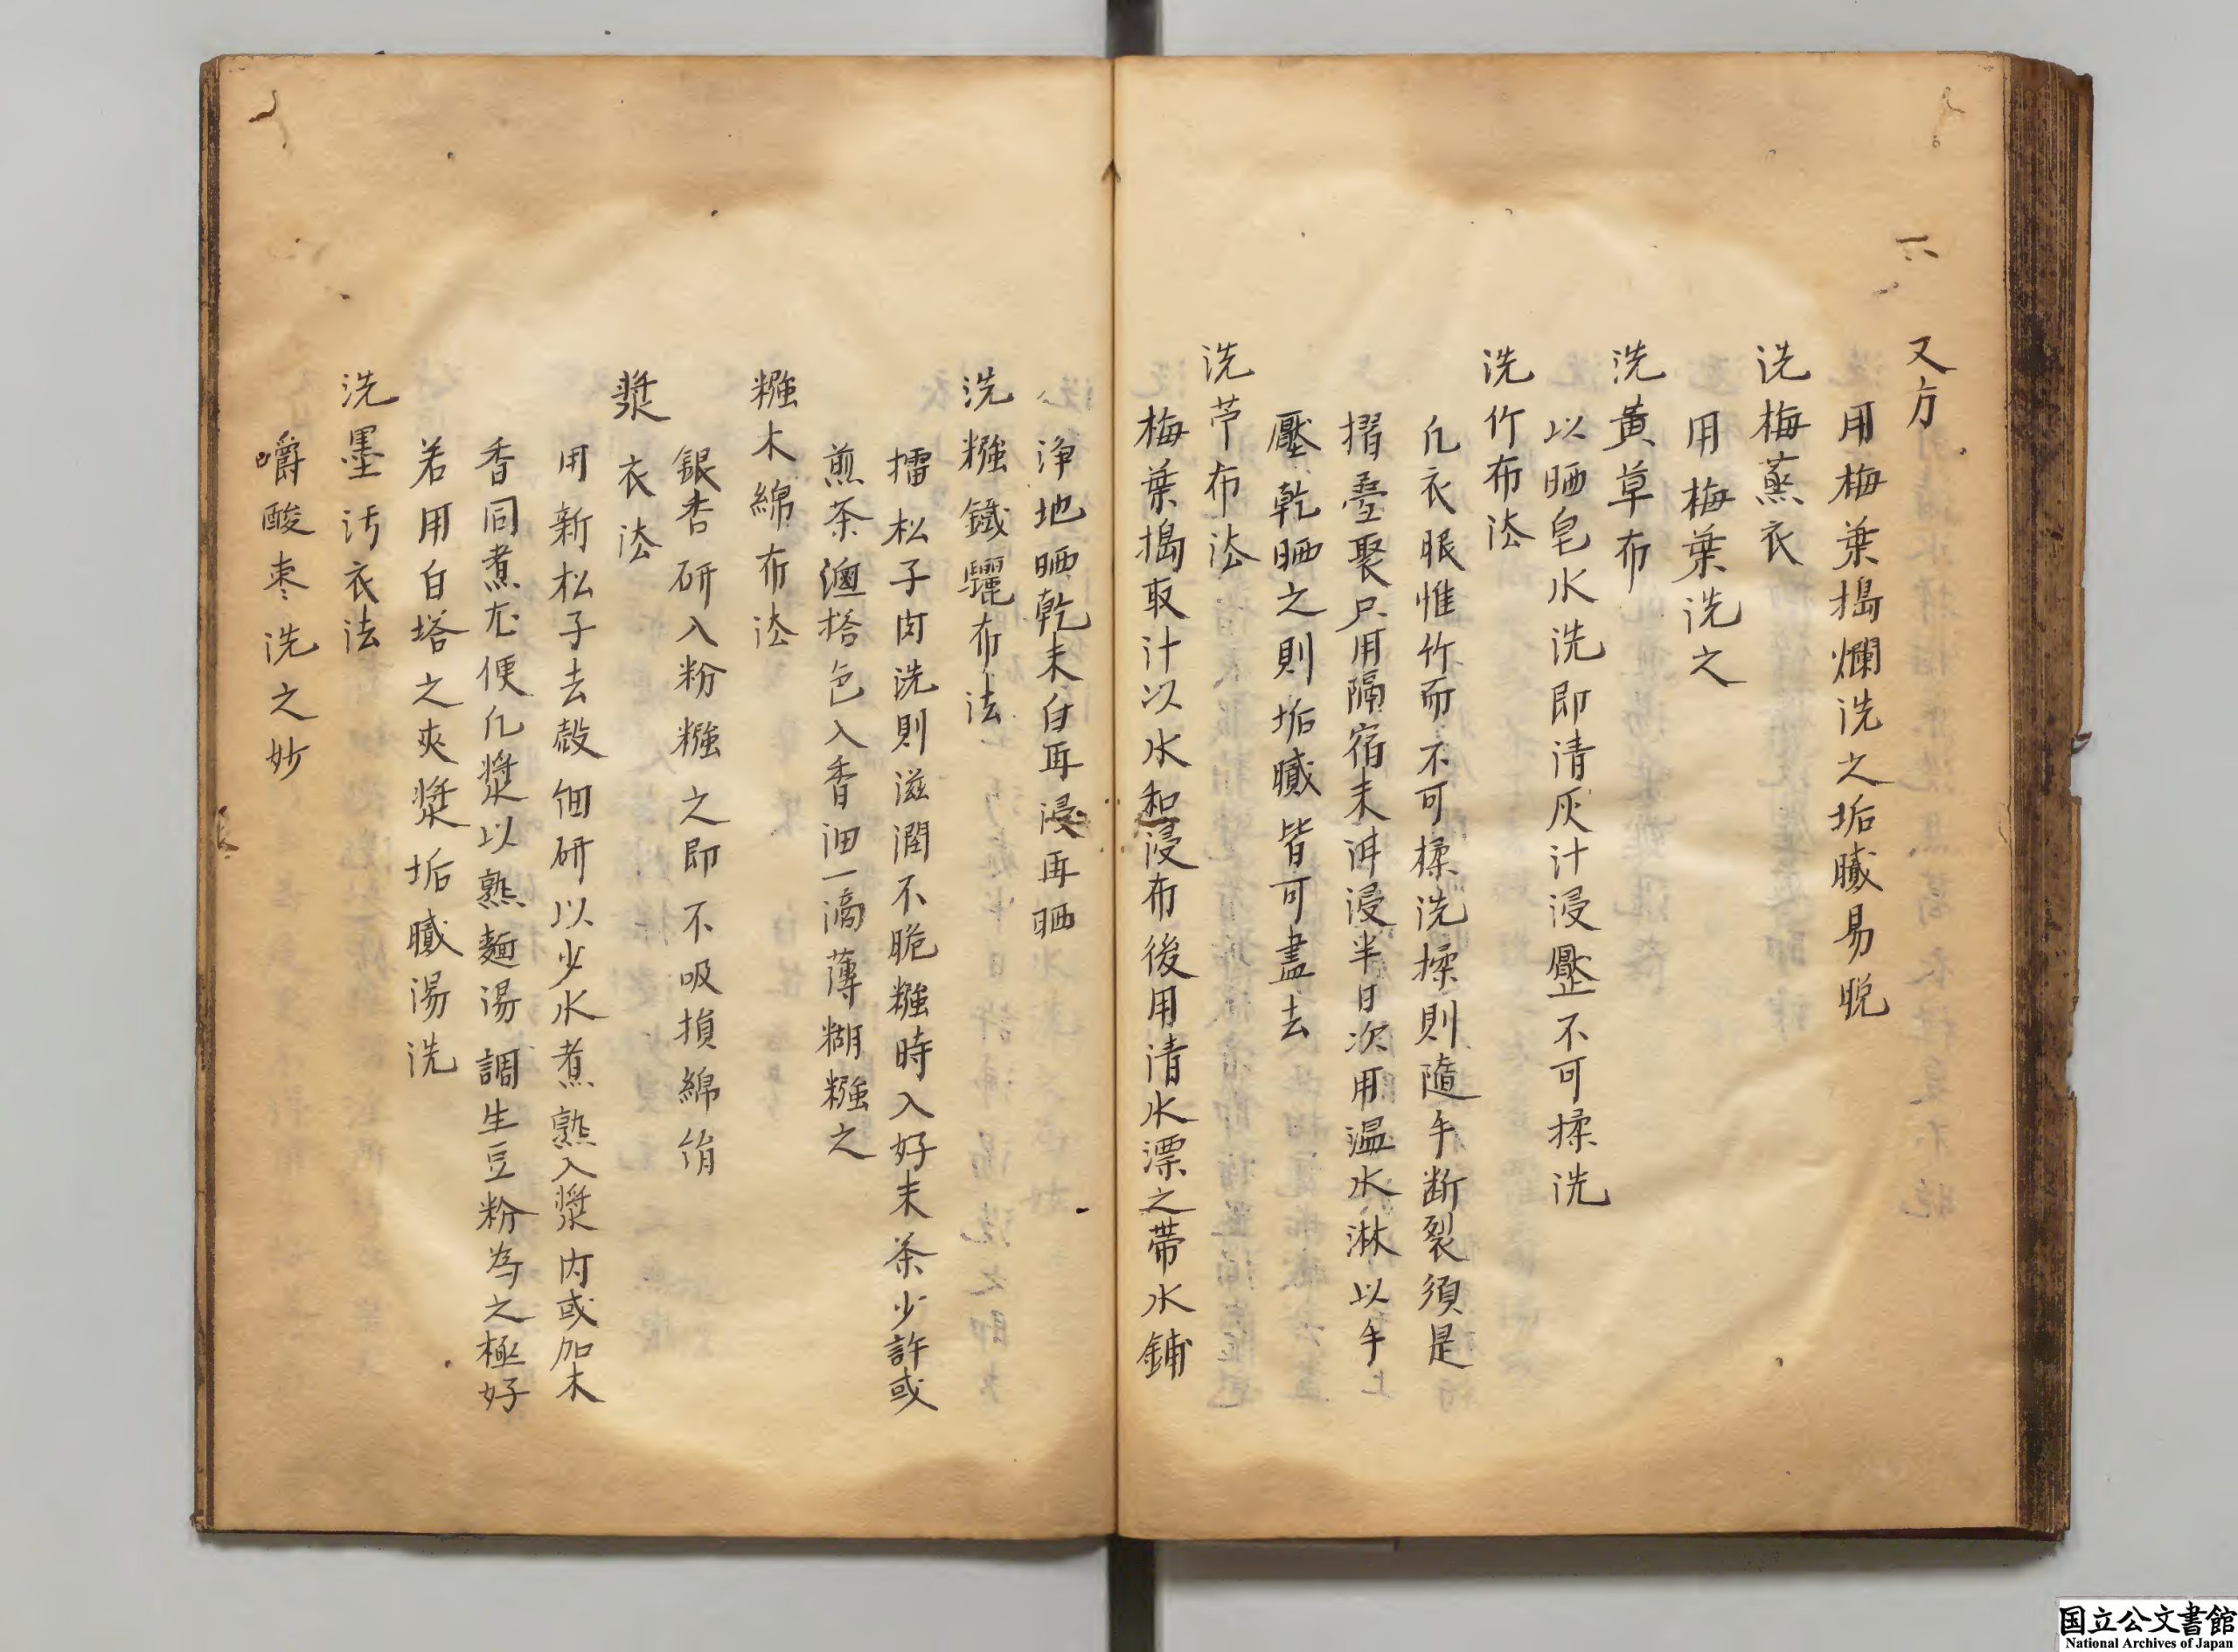 又方
用梅葉搗爛洗之垢膩易脫
洗梅蒸衣
用梅葉洗之
洗黃草布
以晒皂水洗即清灰汁浸壓不可揉洗
洗竹布法
凡衣服惟竹而不可揉洗揉則隨手断裂須是
摺疊聚只用隔宿末泔浸半日次用温水淋以手
壓乾晒之則垢膩皆可盡去
洗苧布法
梅葉搗取汁以水和浸布後用清水漂之帶水鋪
淨地晒乾未白再浸再晒
洗糨鐵驪布法
擂松子肉洗則滋潤不脆糨時入好末茶少許或
煎茶滷搭色入香油一滴薄糊糨之
糨木綿布法
銀杏研入粉糨之即不吸損綿絹
漿衣法
用新松子去殼細研以少水煮熟入漿内或加木
香同煮尤便凡漿以熟麺湯調生豆粉為之極好
若用白塔之爽漿垢膩湯洗
洗墨汚衣法
嚼酸枣洗之妙
国立公文書館
National Archives of Japan